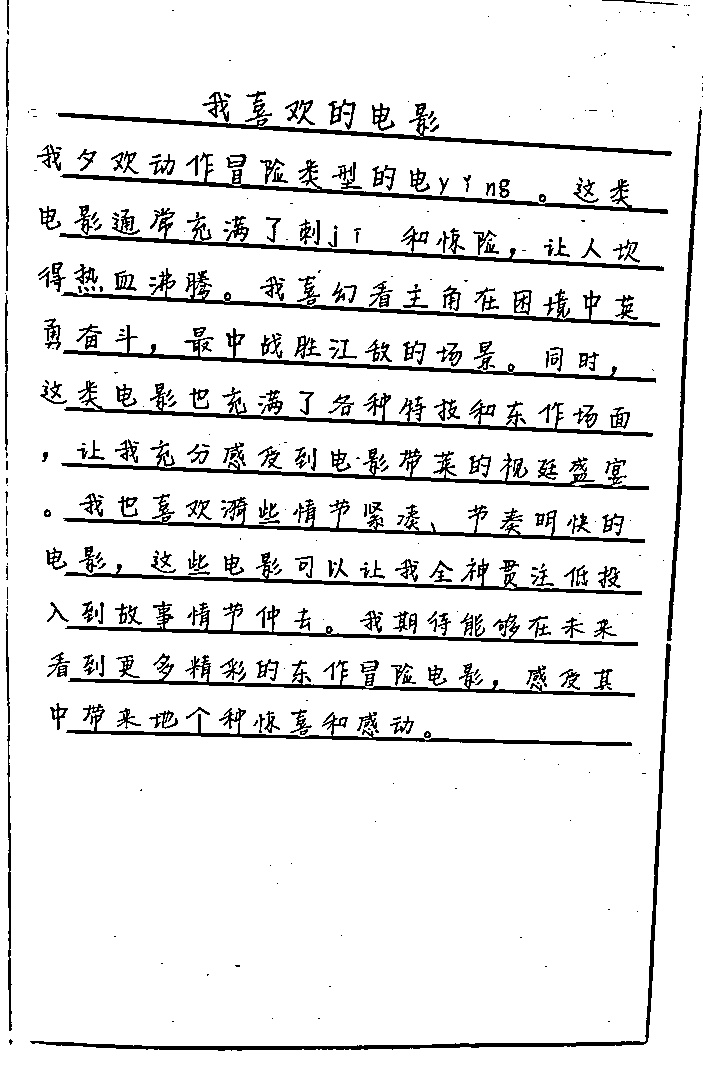 我喜欢的电影
我夕欢动作冒险类型的电yǐng。这类
电影通常充满了刺jī 和惊险，让人坎
得热血沸腾。我喜幻看主角在困境中英
勇奋斗，最中战胜江敌的场景。同时，
这类电影也充满了各种特技和东作场面
，让我充分感及到电影带莱的视廷盛宴
。我也喜欢漪些情节紧凑、节奏明快的
电影，这些电影可以让我全神贯注低投
入到故事情节仲去。我期待能够在未来
看到更多精彩的东作冒险电影，感及其
中带来地个种惊喜和感动。